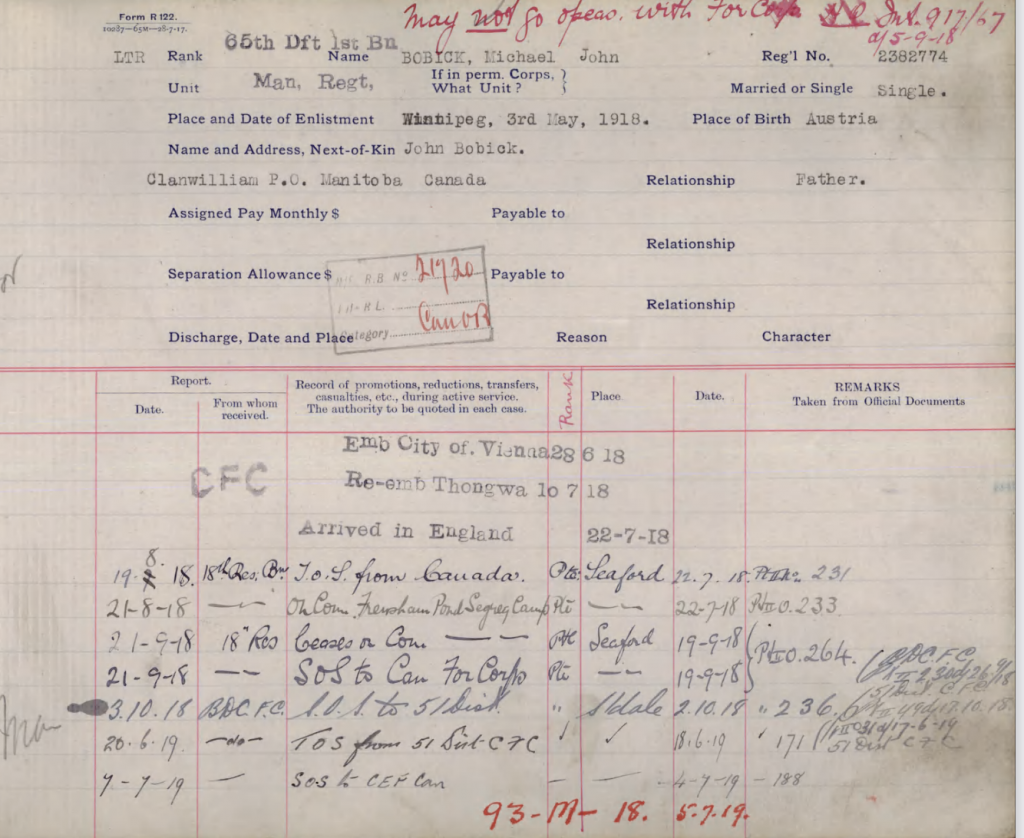 Form R 122.
10287—65M—28-7-17.
May not go o/seas. with For Corps
Int. 917/67
d/5-9-18
65th Dft 1st Bn
LTR Rank Name BOBICK, Michael John Reg'l No. 2382774
Unit Man, Regt, If in perm. Corps, What Unit? Married or Single Single.
Place and Date of Enlistment Winnipeg, 3rd May, 1918. Place of Birth Austria
Name and Address, Next-of-Kin John Bobick.
Clanwilliam P.O. Manitoba Canada Relationship Father.
Assigned Pay Monthly $ Payable to
Relationship
Separation Allowance $ Payable to
R.B No 21720
R.L.
Category Can OR
Relationship
Discharge, Date and Place Reason Character
Report. Date. From whom received. Record of promotions, reductions, transfers, casualties, etc., during active service. The authority to be quoted in each case. Rank Place Date. REMARKS Taken from Official Documents
Emb City of. Vienna 28 6 18
CFC
Re-emb Thongwa 10 7 18
Arrived in England 22-7-18
19-8 18. 18th Res. Bn T.o.S. from Canada. Pte Seaford 22.7.18. 231
21-8-18 — On Com. Frensham Pond Segreg Camp Pte — 22-7-18 Pt II O. 233
21-9-18 18" Res Ceases on Com — — Pte Seaford 19-9-18 Pt II O. 264.
21-9-18 — SOS to Can For Corps Pte — 19-9-18
BDC.F.C.
3.10.18 BDC F.C. S.O.S. to 51 Dist. " S'dale 2.10.18 " 236
51 Dist C.F.C.
20.6.19. —do— TOS from 51 Dist CFC 18.6.19 ' 171
d/17-6-19
51 Dist CFC
7-7-19 — SOS to CEF Can — — 4-7-19 — 188
93-M-18. 5.7.19.